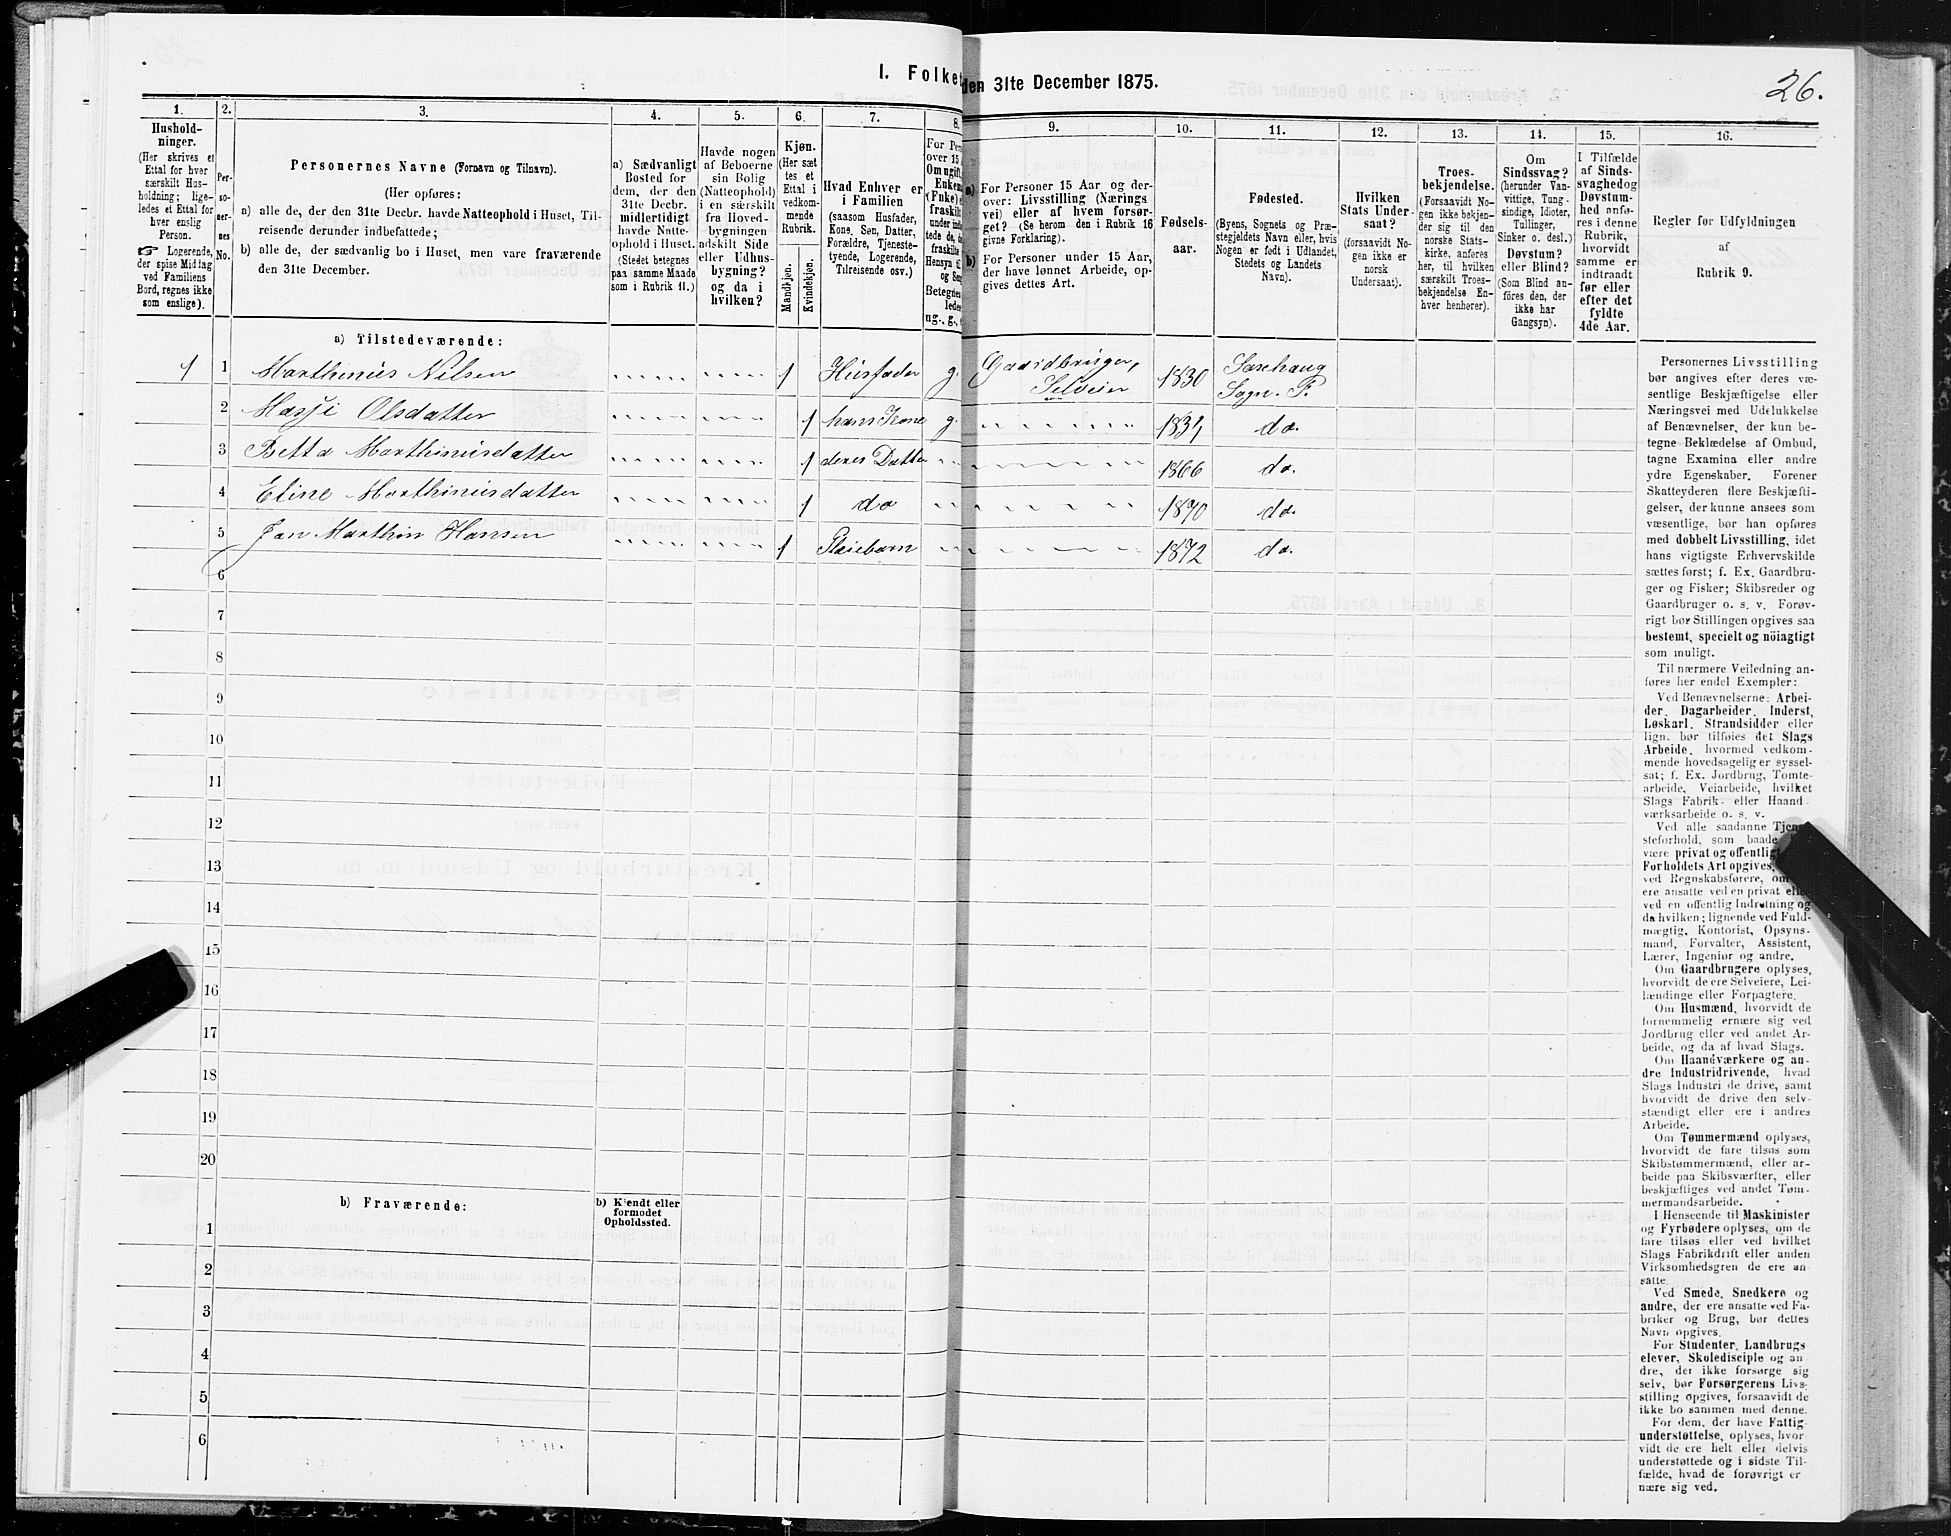 I. Folketællingen den 31te December 1875.
26.
1.
Hushold-
ninger.
(Her skrives et
Ettal for hver
særskilt Hus-
holdning; lige-
ledes et Ettal for
hver enslig
Person.
☞ Logerende,
der spise Middag
ved Familiens
Bord, regnes ikke
som enslige).
2.
Per-
so-
ner-
nes
No.
3.
Personernes Navne (Fornavn og Tilnavn).
(Her opføres:
a) alle de, der den 31te Decbr. havde Natteophold i Huset, Til-
reisende derunder indbefattede;
b) alle de, der sædvanlig bo i Huset, men vare fraværende
den 31te December.
4.
a) Sædvanligt
Bosted for
dem, der den
31te Decbr.
midlertidigt
havde Natte-
ophold i Huset.
(Stedet betegnes
paa samme Maade
som i Rubrik 11.)
5.
Havde nogen
af Beboerne
sin Bolig
(Natteophold)
i en særskilt
fra Hoved-
bygningen
adskilt Side
eller Udhus-
bygning?
og da i
hvilken?
6.
Kjøn.
(Her sæt
tes et
Ettal i
vedkom-
mende
Rubrik.
Mandkjøn.
Kvindekjøn.
7.
Hvad Enhver er
i Familien
(saasom Husfader,
Kone, Søn, Datter,
Forældre, Tjeneste-
tyende, Logerende,
Tilreisende osv.)
8.
For Pers
over 15 A
Om ugift,
Enkem
(Fnke) e
fraskilt
under indst
tede de, de
fraskilte
Hensyn ti
og Sen
Betegnes
ledes
ug., g., e
9.
a) For Personer 15 Aar og der-
over: Livsstilling (Nærings
vei) eller af hvem forsør-
get? (Se herom den i Rubrik 16
givne Forklaring).
b) For Personer under 15 Aar,
der have lønnet Arbeide, op-
gives dettes Art.
10.
Fødsels-
aar.
11.
Fødested.
(Byens, Sognets og Præ-
stegjeldets Navn eller, hvis
Nogen er født i Udlandet,
Stedets og Landets
Navn).
12.
Hvilken
Stats Under-
saat?
(forsaavidt No-
gen ikke er
norsk
Undersaat).
13.
Troes-
bekjendelse.
(Forsaavidt No-
gen ikke bekjen-
der sig til den
norske Stats-
kirke, anføres
her, til hvilken
særskilt Troes-
bekjendelse En-
hver henhører).
14.
Om
Sindssvag?
(herunder Van-
vittige, Tung-
sindige, Idioter,
Tullinger,
Sinker o. desl.)
Døvstum?
eller Blind?
(Som Blind an-
føres den, der
ikke har
Gangsyn).
15.
I Tilfælde
af Sinds-
svaghedog
Døvstum-
hed anfø-
res i denne
Rubrik,
hvorvidt
samme er
indtraadt
før eller
efter det
fyldte
4de Aar.
16.
Regler for Udfyldningen
af
Rubrik 9.
a) Tilstedeværende:
1 1 Marthinus Nilsen 1 Husfader g. Gaardbruger, Selveier 1830 Sørehaug Sogn. P.
2 Masji Olsdatter 1 hans Kone g. 1831 do.
3 Betta Marthinusdatter 1 deres Datter 1866 do.
4 Eline Marthinusdatter 1 do 1870 do.
5 Jan Marthin Hansen 1 Pleiebarn 1872 do.
6
7
8
9
10
11
12
13
14
15
16
17
18
19
20
b) Fraværende:
b) Kjendt eller
formodet
Opholdssted.
1
2
3
4
5
6
Personernes Livsstilling
bør angives efter deres væ-
sentlige Beskjæftigelse eller
Næringsvei med Udelukkelse
af Benævnelser, der kun be-
tegne Beklædelse af Ombud,
tagne Examina eller andre
ydre Egenskaber. Forener
Skatteyderen flere Beskjæfti-
gelser, der kunne ansees som
væsentlige, bør han opføres
med dobbelt Livsstilling, idet
hans vigtigste Erhvervskilde
sættes først; f. Ex. Gaardbru-
ger og Fisker; Skibsreder og
Gaardbruger o. s. v. Forøv-
rigt bør Stillingen opgives saa
bestemt, specielt og nöiagtigt
som muligt.
Til nærmere Veiledning an-
føres her endel Exempler:
Ved Benævnelserne: Arbei-
der, Dagarbeider, Inderst,
Løskarl, Strandsidder eller
lign. bør tilføies det Slags
Arbeide, hvormed vedkom-
mende hovedsagelig er syssel-
sat; f. Ex. Jordbrug, Tomte-
arbeide, Veiarbeide, hvilket
Slags Fabrik- eller Haand-
værksarbeide o. s. v.
Ved alle saadanne Tjene-
steforhold, som baade
være privat og offentligt
Forholdets Art opgives,
ved Regnskabsførere, om
ere ansatte ved en privat eller
ved en offentlig Indretning og
da hvilken; lignende ved Fuld-
mægtig, Kontorist, Opsyns-
mand, Forvalter, Assistent,
Lærer, Ingeniør og andre.
Om Gaardbrugere oplyses,
hvorvidt de ere Selveiere, Lei-
lændinge eller Forpagtere.
Om Husmænd, hvorvidt de
fornemmelig ernære sig ved
Jordbrug eller ved andet Ar-
beide, og da af hvad Slags.
Om Haandværkere og an-
dre Industridrivende, hvad
Slags Industri de drive, samt
hvorvidt de drive den selv-
stændigt eller ere i andres
Arbeide.
Om Tømmermænd oplyses,
hvorvidt de fare tilsøs som
Skibstømmermænd, eller ar-
beide paa Skibsværfter, eller
beskjæftiges ved andet Tøm-
mermandsarbeide.
I Henseende til Maskinister
og Fyrbødere oplyses, om de
fare tilsøs eller ved hvilket
Slags Fabrikdrift eller anden
Virksomhedsgren de ere an-
satte.
Ved Smede, Snedkere og
andre, der ere ansatte ved Fa-
briker og Brug, bør dettes
Navn opgives.
For Studenter, Landbrugs
elever, Skoledisciple og an
dre, der ikke forsørge sig
selv, bør Forsørgerens Livs-
stilling opgives, forsaavidt de
ikke bo sammen med denne.
For dem, der have Fattig-
understøttelse, oplyses, hvor-
vidt de ere helt eller delvis
understøttede og i sidste Til-
fælde, hvad de forøvrigt er
nære sig ved.